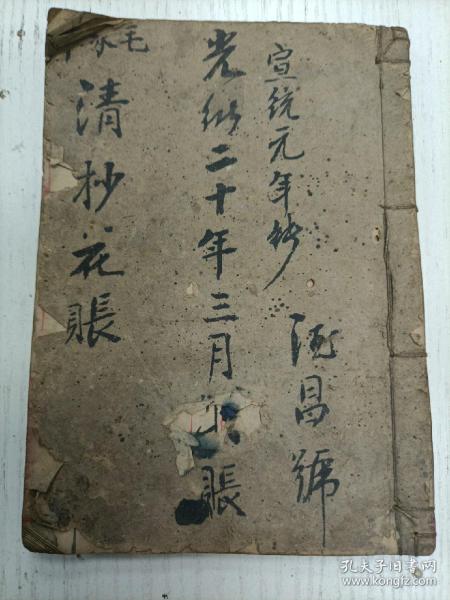 宣統元年抄
德昌號
光緒二十年三月 賬
清抄花賬
毛家
孔夫子旧书网
www.kongfz.com